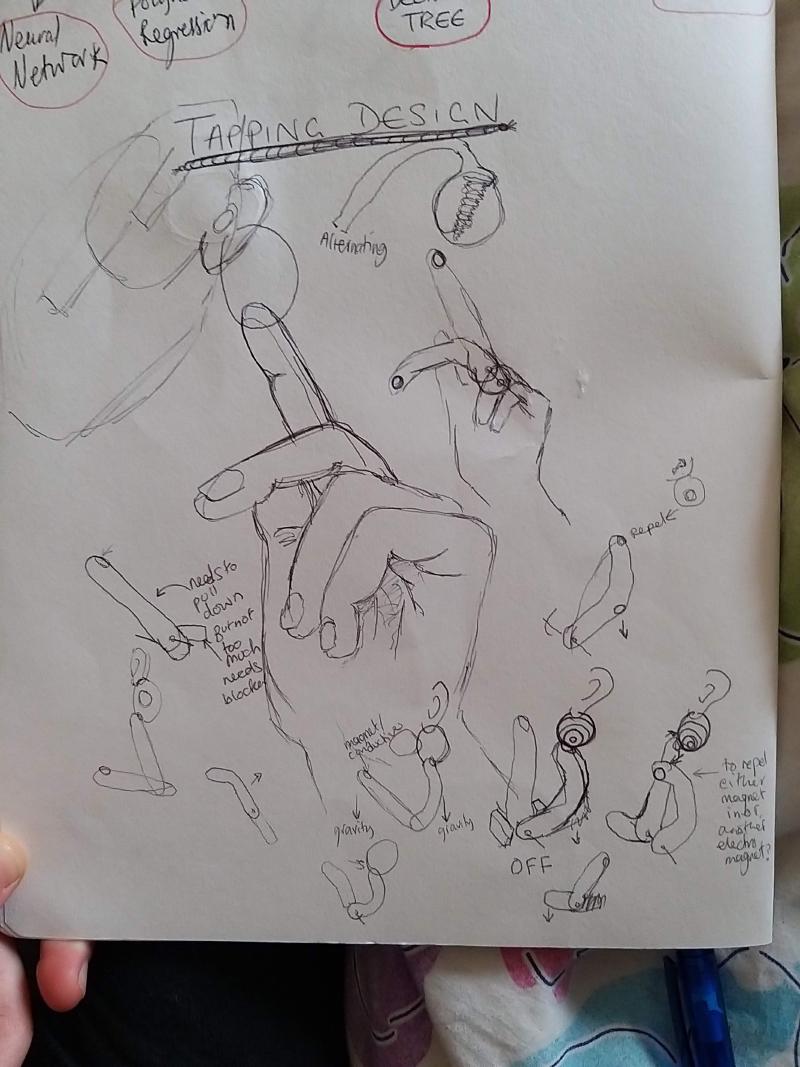 Neural
Network
Regression
TREE
TAPPING DESIGN
Alternating
Repel
needs to
pull
down
But not
too
much
needs
blocker
magnet/
conductive
gravity
gravity
OFF
to repel
either
magnet
in or
another
electro
magnet?